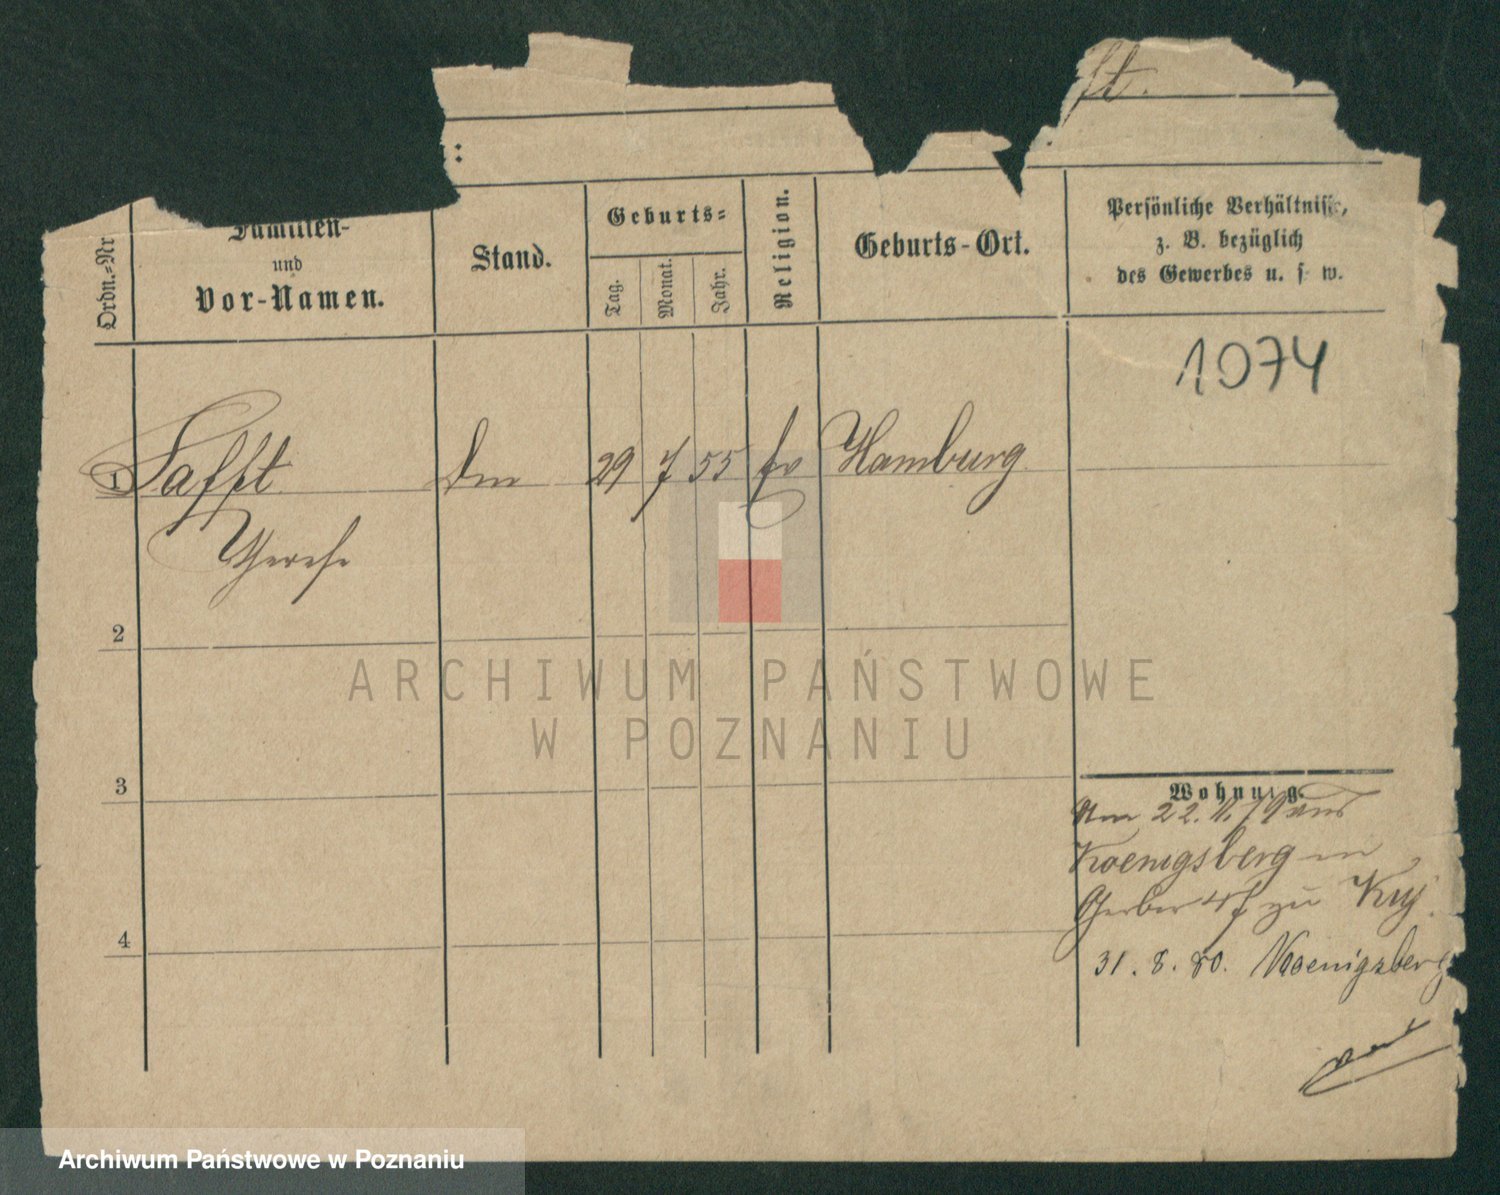 ft.
:
Ordn.=Nr
Familien-
und
Vor-Namen.
Stand.
Geburts=
Tag.
Monat.
Jahr.
Religion.
Geburts-Ort.
Persönliche Verhältnisse,
z. B. bezüglich
des Gewerbes u. s w.
1074
1 Safft 29 7 55 Ev Hamburg
2
3
4
Wohnung.
Am 22. 79 aus
Koenigsberg in
Gerber zu
31. 8. 80. Koenigsberg
ARCHIWUM PAŃSTWOWE
W POZNANIU
Archiwum Państwowe w Poznaniu